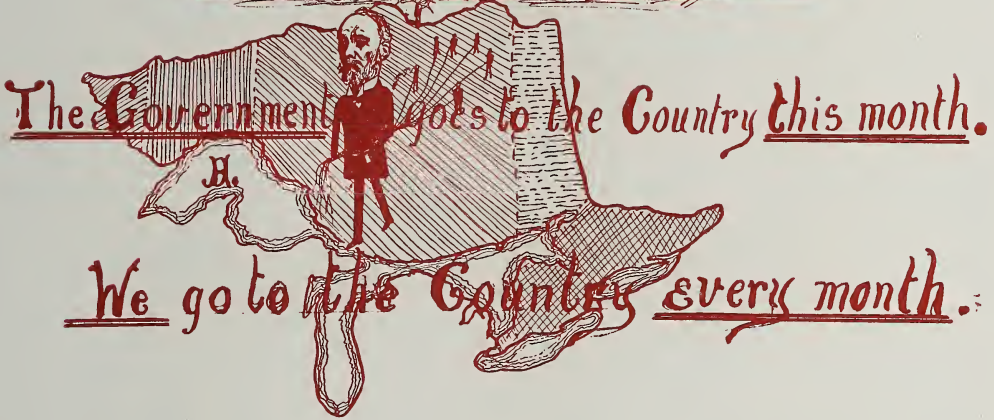 The Government goes to the Country this month.
H.
We go to the Country every month.